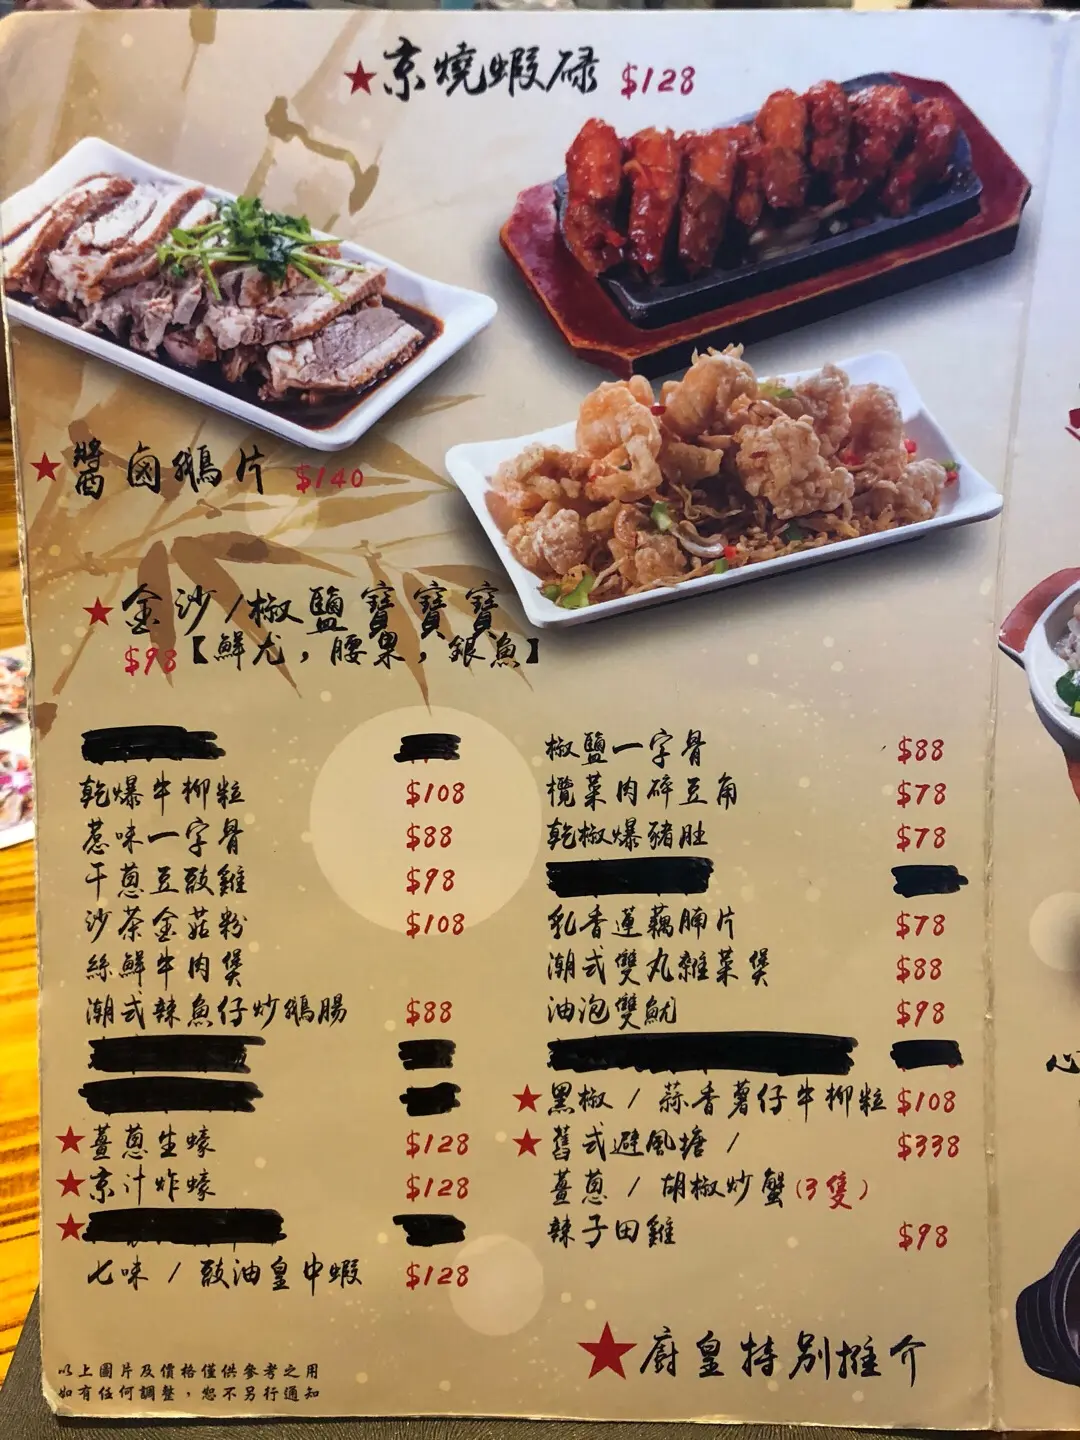 ★京燒蝦碌 $128
★醬鹵鵝片 $140
★金沙/椒鹽寶寶寶
$98【鮮尤，腰果，銀魚】
乾爆牛柳粒 $108
惹味一字骨 $88
干蔥豆豉雞 $98
沙茶金菇粉 $108
絲鮮牛肉煲
潮式辣魚仔炒鵝腸 $88
★薑蔥生蠔 $128
★京汁炸蠔 $128
★
七味 / 豉油皇中蝦 $128
椒鹽一字骨 $88
欖菜肉碎豆角 $78
乾椒爆豬肚 $78
乳香蓮藕腩片 $78
潮式雙丸雜菜煲 $88
油泡雙魷 $98
★黑椒 / 蒜香薯仔牛柳粒 $108
★舊式避風塘 / $338
薑蔥 / 胡椒炒蟹(3隻)
辣子田雞 $98
★廚皇特別推介
以上圖片及價格僅供參考之用
如有任何調整，恕不另行通知